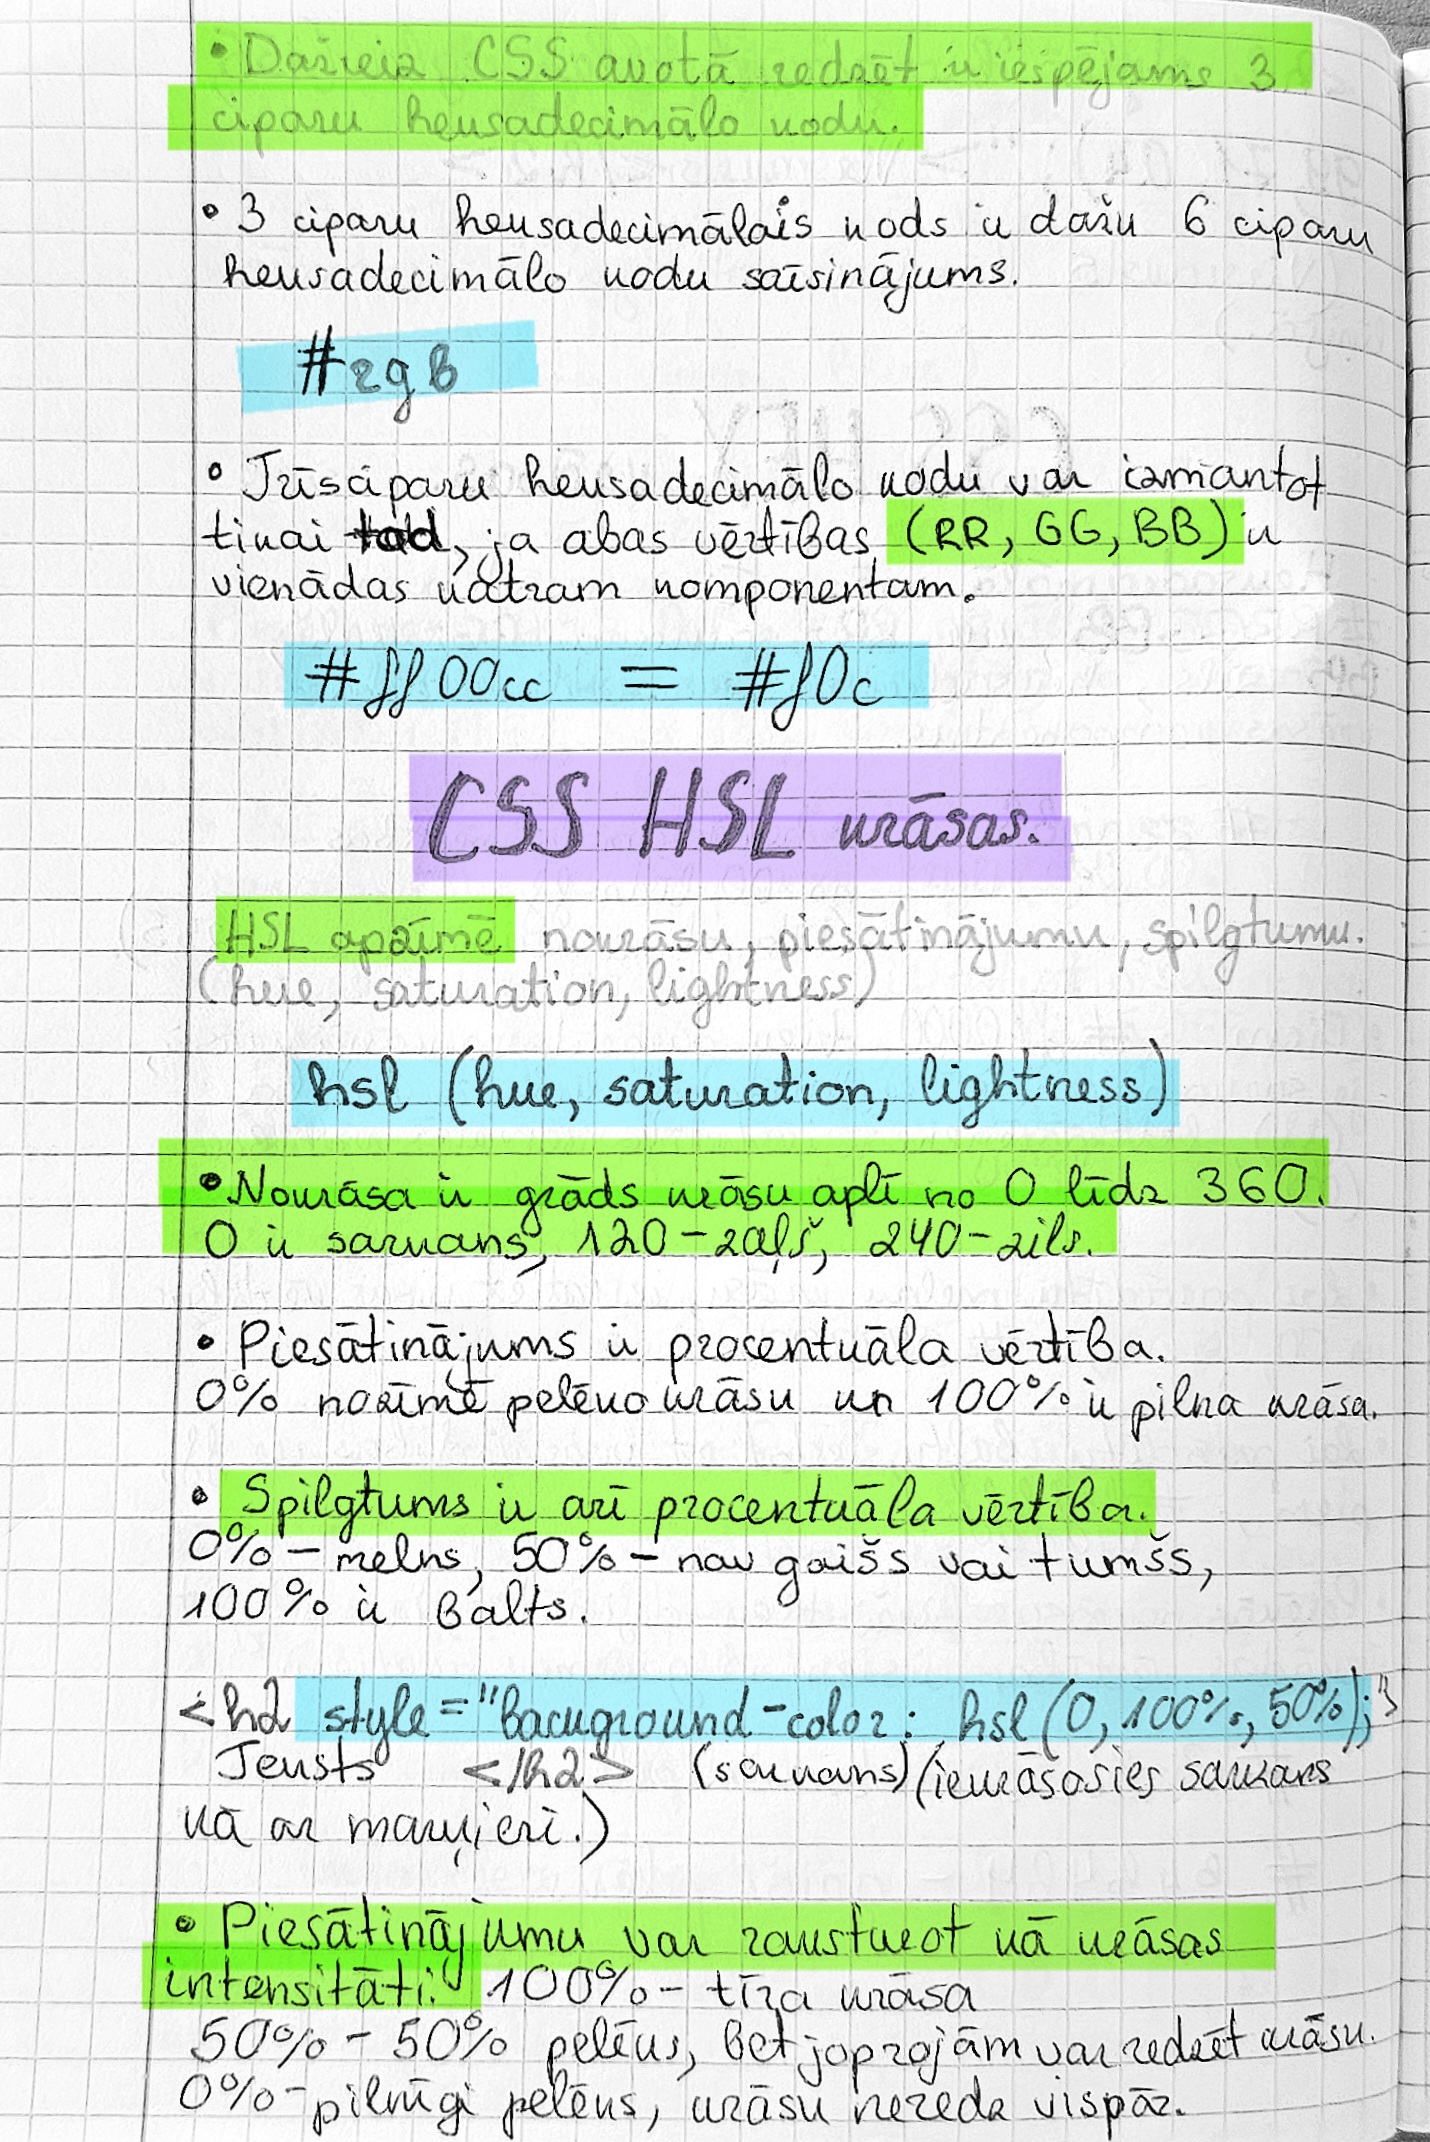 • Dažreiz CSS avotā redzēt ir iespējams 3
ciparu heksadecimālo kodu.
• 3 ciparu heksadecimālais kods ir dažu 6 ciparu
heksadecimālo kodu saīsinājums.
#rgb
• Trīsciparu heksadecimālo kodu var izmantot
tikai tad, ja abas vērtības (RR, GG, BB) ir
vienādas katram komponentam.
#ff00cc = #f0c
CSS HSL krāsas.
HSL apzīmē nokrāsu, piesātinājumu, spilgtumu.
(hue, saturation, lightness)
hsl (hue, saturation, lightness)
• Nokrāsa ir grāds krāsu aplī no 0 līdz 360.
0 ir sarkans, 120 – zaļš, 240 – zils.
• Piesātinājums ir procentuāla vērtība.
0% nozīmē pelēko krāsu un 100% ir pilna krāsa.
• Spilgtums ir arī procentuāla vērtība.
0% – melns, 50% – nav gaišs vai tumšs,
100% ir balts.
<h2 style="background-color: hsl(0, 100%, 50%);">
Teksts </h2> (sarkans) (iekrāsosies sarkans
kā ar marķieri.)
• Piesātinājumu var raksturot kā krāsas
intensitāti. 100% – tīra krāsa
50% – 50% pelēks, bet joprojām var redzēt krāsu.
0% – pilnīgi pelēks, krāsu neredz vispār.